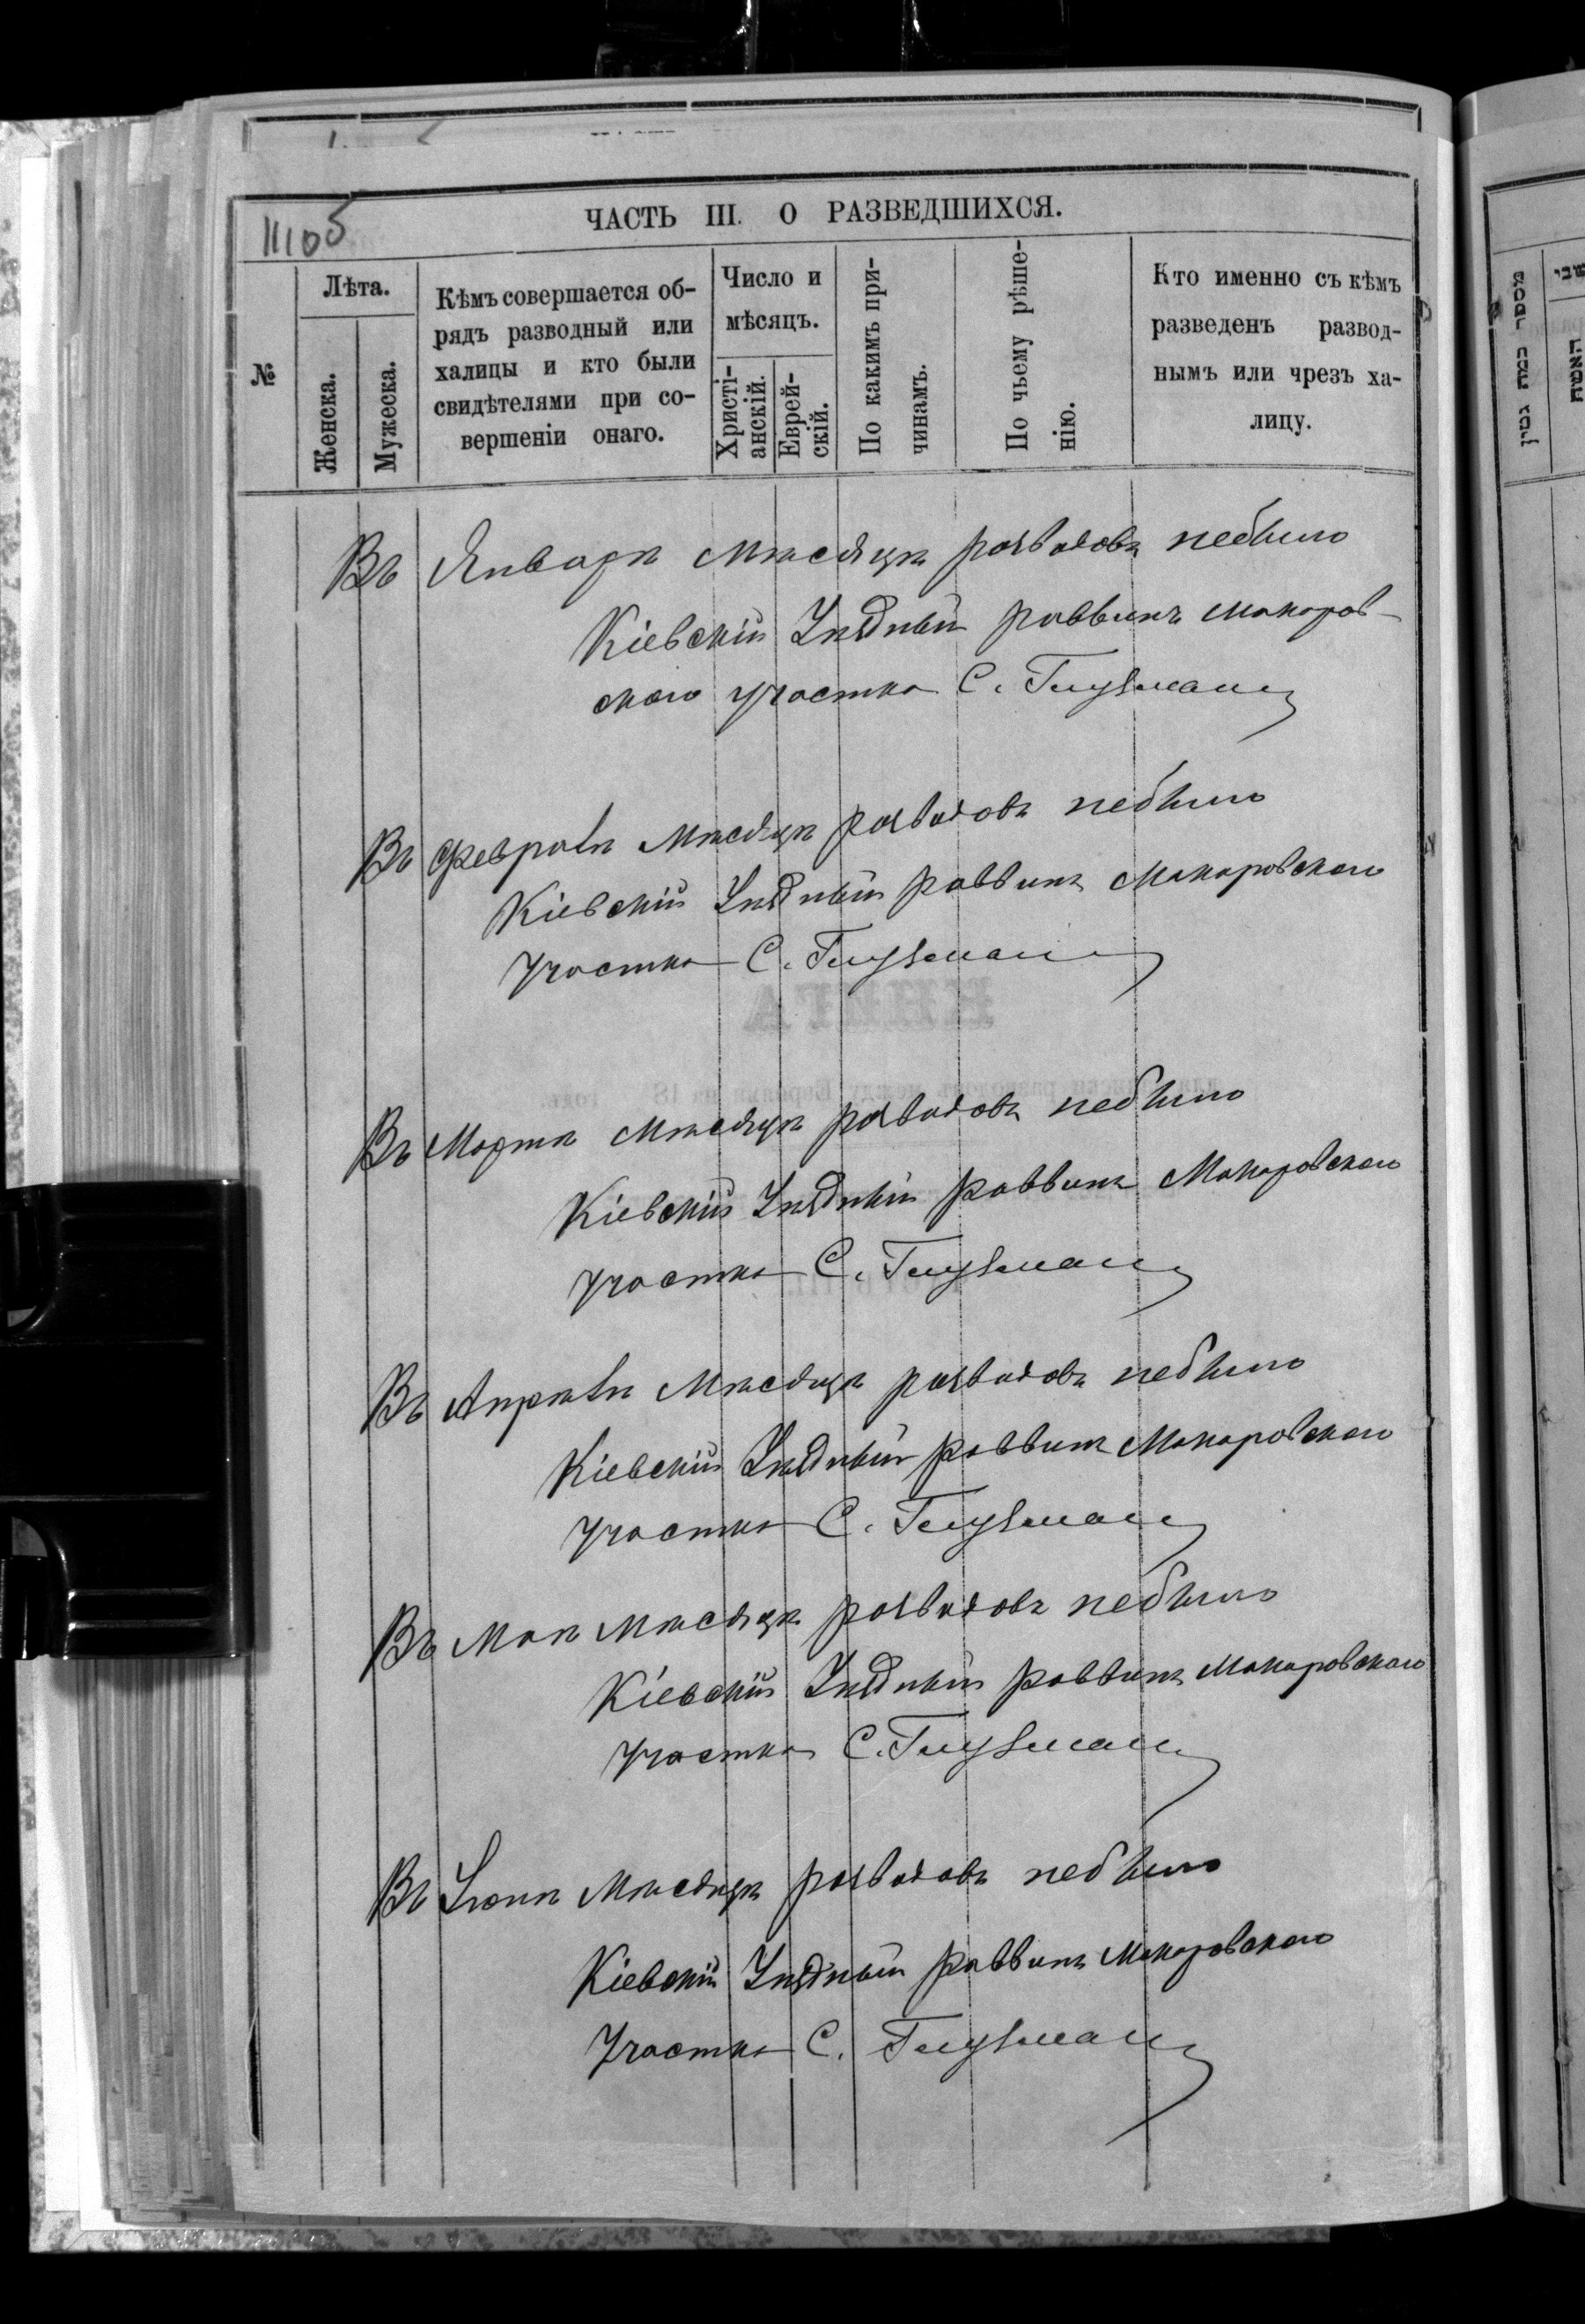 ЧАСТЬ III. О РАЗВЕДШИХСЯ.
№
Лѣта.
Женска.
Мужеска.
Кѣмъ совершается об-
рядъ разводный или
халицы и кто были
свидѣтелями при со-
вершеніи онаго.
Число и
мѣсяцъ.
Христі-
анскій.
Еврей-
скій.
По какимъ при-
чинамъ.
По чьему рѣше-
нію.
Кто именно съ кѣмъ
разведенъ развод-
нымъ или чрезъ ха-
лицу.
Въ Январѣ мѣсяцѣ разводовъ небыло
Кіевскій Уѣздный раввинъ Макаров-
скаго участка С. Глузманъ
Въ Февралѣ мѣсяцѣ разводовъ небыло
Кіевскій Уѣздный раввинъ Макаровскаго
Участка С. Глузманъ
КНИГА
Въ Мартѣ мѣсяцѣ разводовъ небыло
Кіевскій Уѣздный раввинъ Макаровскаго
Участка С. Глузманъ
Въ Апрѣлѣ мѣсяцѣ разводовъ небыло
Кіевскій Уѣздный раввинъ Макаровскаго
Участка С. Глузманъ
Въ Маѣ мѣсяцѣ разводовъ небыло
Кіевскій Уѣздный раввинъ Макаровскаго
Участка С. Глузманъ
Въ Іюнѣ мѣсяцѣ разводовъ небыло
Кіевскій Уѣздный раввинъ Макаровскаго
Участка С. Глузманъ
מספר כמה גטין
האשה